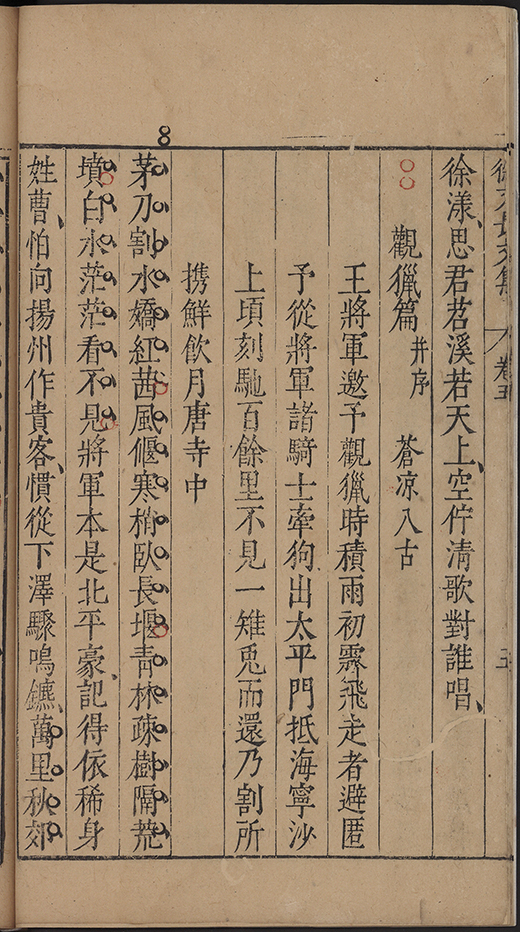 徐文長文集 卷五 五
徐漾、思君苕溪若天上、空佇淸歌對誰唱、
觀獵篇 并序 蒼凉入古
王將軍邀予觀獵時積雨初霽飛走者避匿
予從將軍諸騎士牽狗出太平門抵海寧沙
上頃刻馳百餘里不見一雉兎而還乃割所
携鮮飮月唐寺中
茅刀割水嬌紅茜風偃寒梢臥長堰靑林疎樹隔荒
墳白水茫茫看不見將軍本是北平豪、記得依稀身
姓曹、怕向揚州作貴客、慣從下澤驟鳴鑣、萬里秋郊
8